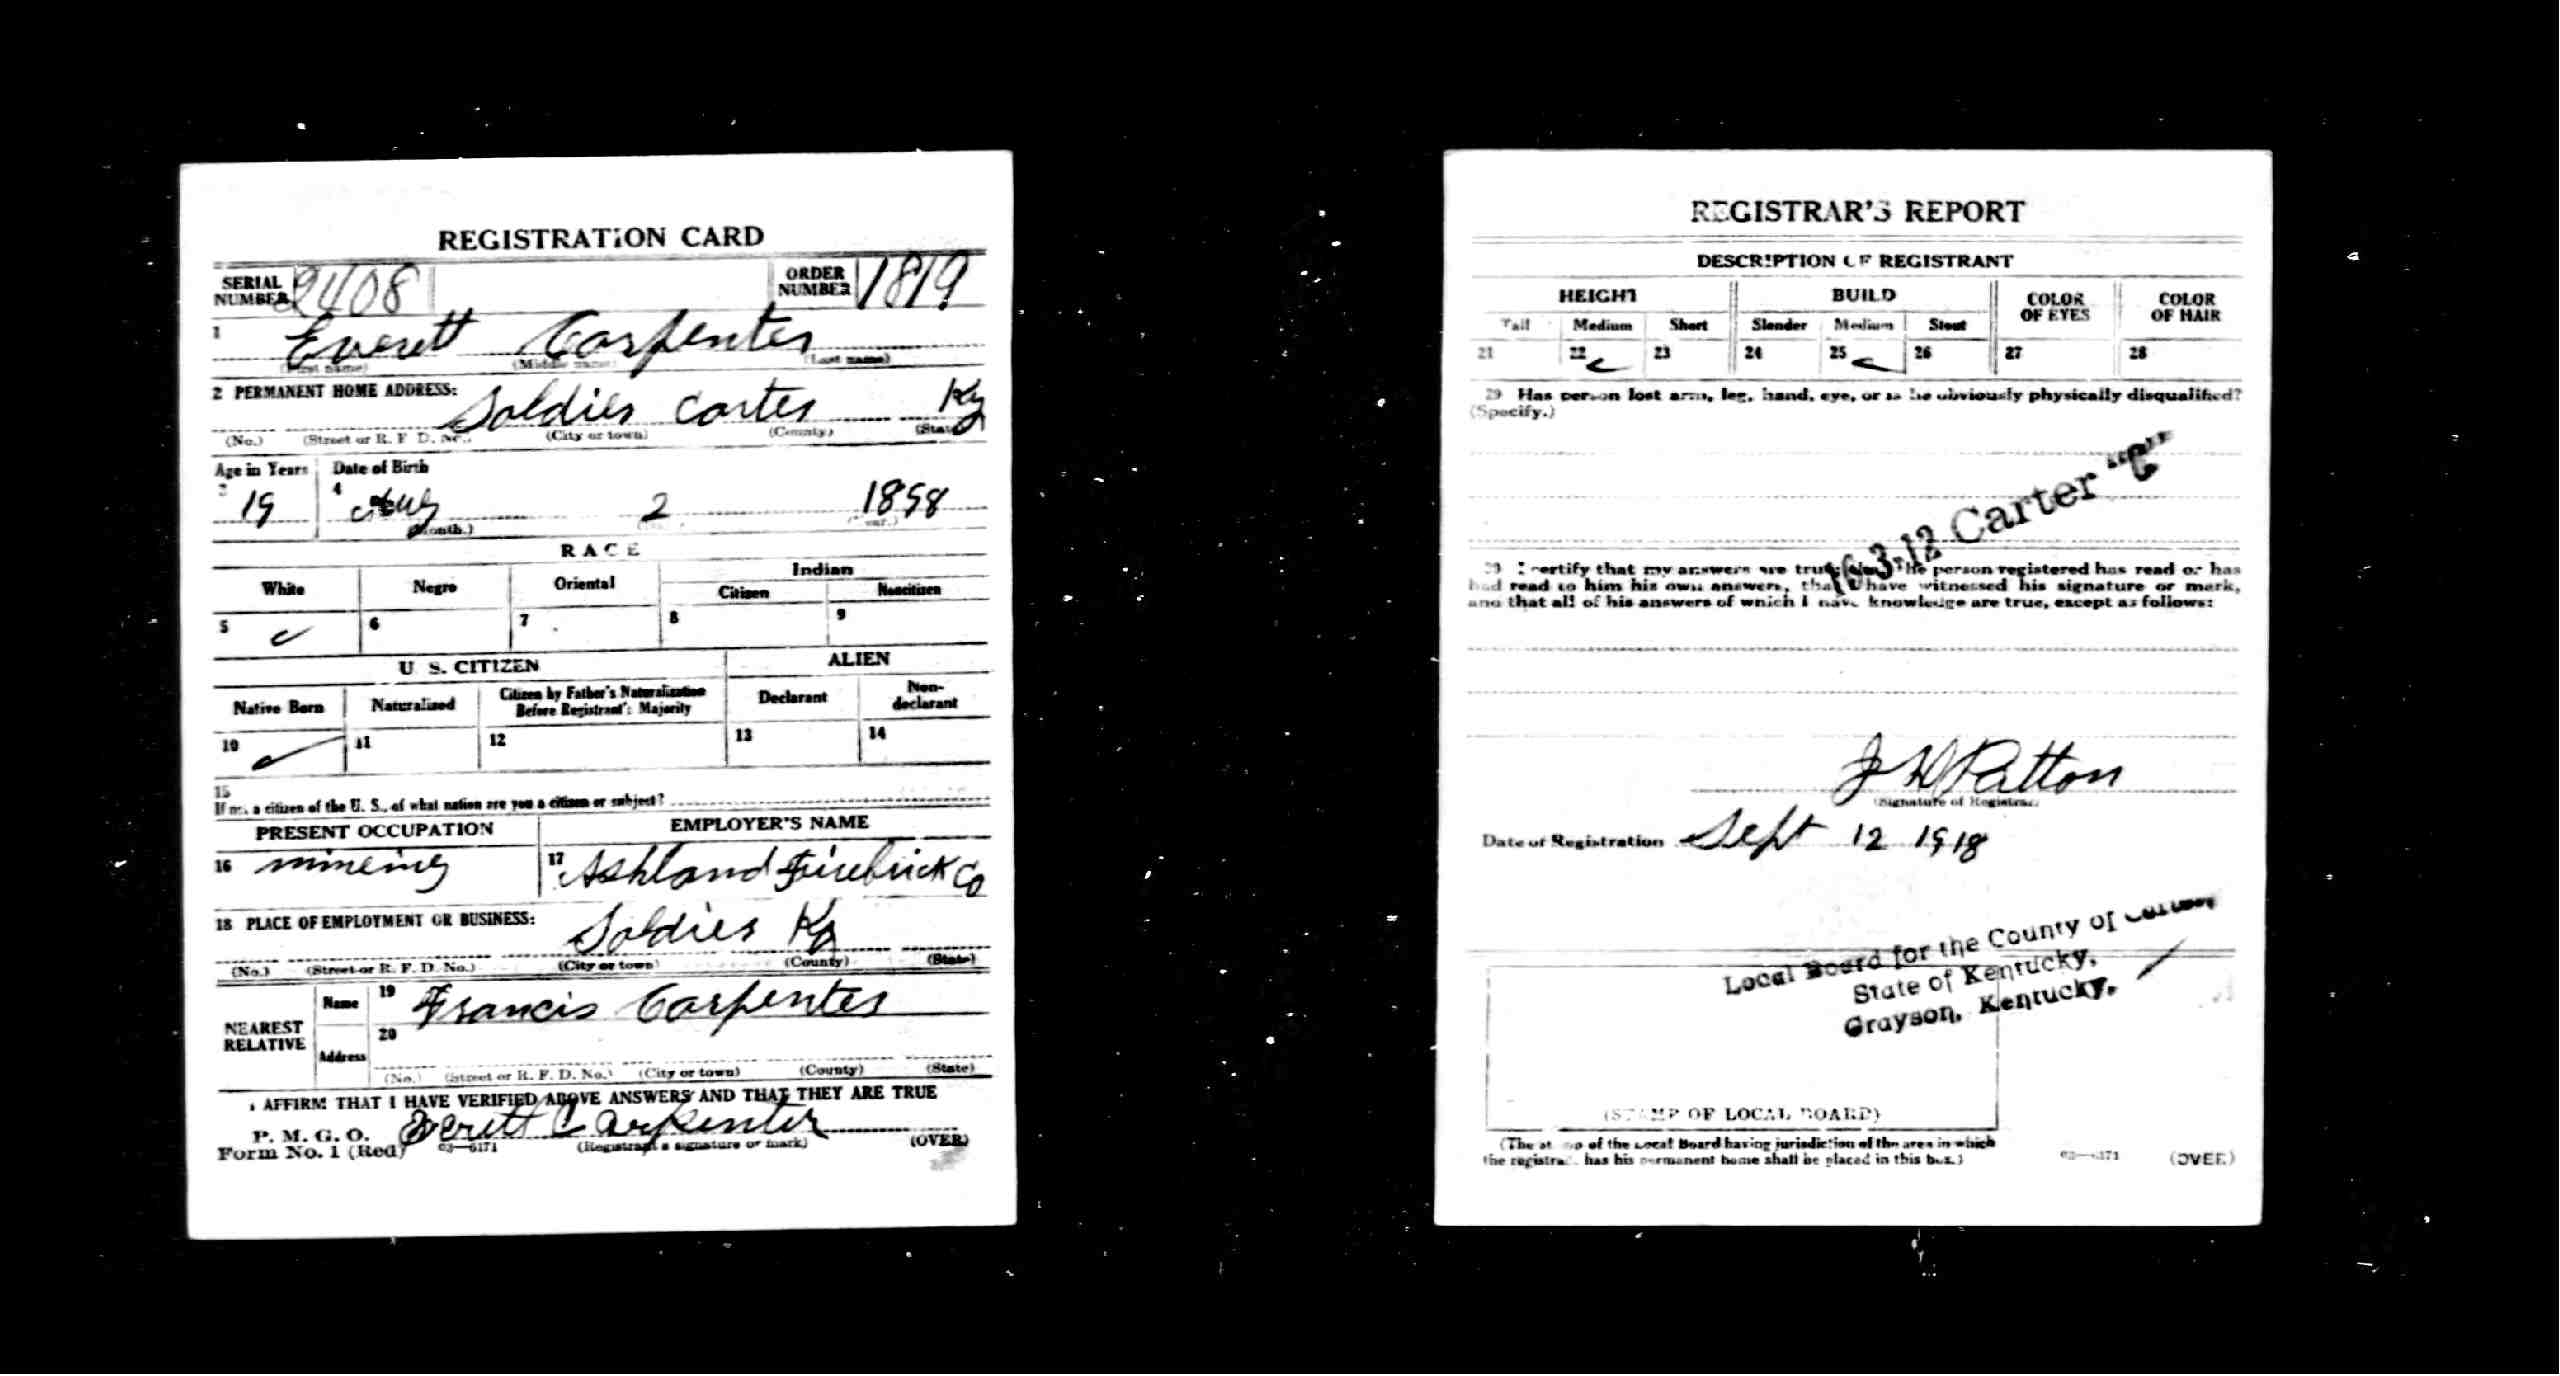 REGISTRATION CARD
SERIAL NUMBER 2408 ORDER NUMBER 1819
1 Everett Carpenter
(First name) (Middle name) (Last name)
2 PERMANENT HOME ADDRESS: Soldier Carter Ky
(No.) (Street or R. F. D. No.) (City or town) (County) (State)
Age in Years Date of Birth
3 19 4 Aug 2 1898
(Month.) (Year.)
RACE
White Negro Oriental Indian
Citizen Noncitizen
5 6 7 8 9
U. S. CITIZEN ALIEN
Native Born Naturalized Citizen by Father's Naturalization Before Registrant's Majority Declarant Non-declarant
10 11 12 13 14
15
If not a citizen of the U. S., of what nation are you a citizen or subject?
PRESENT OCCUPATION EMPLOYER'S NAME
16 mineing 17 Ashland Firebrick Co
18 PLACE OF EMPLOYMENT OR BUSINESS: Soldier Ky
(No.) (Street or R. F. D. No.) (City or town) (County) (State)
NEAREST RELATIVE Name 19 Francis Carpenter
Address 20
(No.) (Street or R. F. D. No.) (City or town) (County) (State)
I AFFIRM THAT I HAVE VERIFIED ABOVE ANSWERS AND THAT THEY ARE TRUE
P. M. G. O.
Form No. 1 (Red) 03—6171 Everett Carpenter
(Registrant's signature or mark) (OVER)
REGISTRAR'S REPORT
DESCRIPTION OF REGISTRANT
HEIGHT BUILD COLOR OF EYES COLOR OF HAIR
Tall Medium Short Slender Medium Stout
21 22 23 24 25 26 27 28
29 Has person lost arm, leg, hand, eye, or is he obviously physically disqualified?
(Specify.)
16-3-12 Carter "C"
30 I certify that my answers are true; that the person registered has read or has
had read to him his own answers, that I have witnessed his signature or mark,
and that all of his answers of which I have knowledge are true, except as follows:
J W Patton
(Signature of Registrar)
Date of Registration Sept 12 1918
Local Board for the County of Carter
State of Kentucky,
Grayson, Kentucky,
(STAMP OF LOCAL BOARD)
(The stamp of the Local Board having jurisdiction of the area in which
the registrant has his permanent home shall be placed in this box.)
03—6171 (OVER)